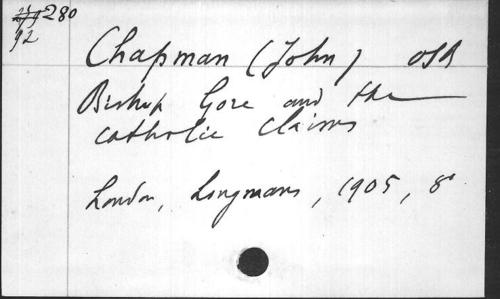 280
92
Chapman (John) OSB
Bishop Gore and the
catholic Claims
London, Longmans, 1905, 8°